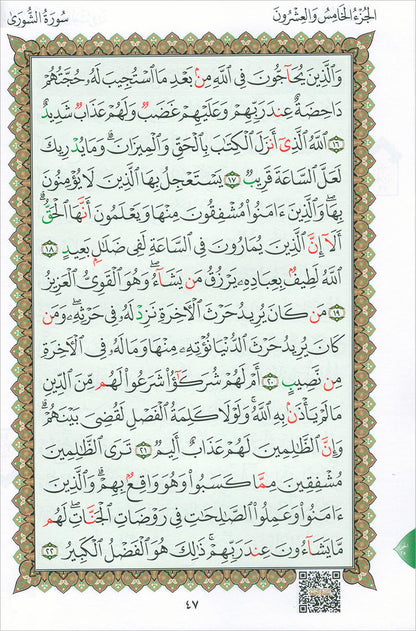 سُورَةُ الشُّورَىٰ
الجُزْءُ الخَامِسُ وَالعِشْرُونَ
وَٱلَّذِينَ يُحَآجُّونَ فِي ٱللَّهِ مِنۢ بَعْدِ مَا ٱسْتُجِيبَ لَهُۥ حُجَّتُهُمْ
دَاحِضَةٌ عِندَ رَبِّهِمْ وَعَلَيْهِمْ غَضَبٌ وَلَهُمْ عَذَابٌ شَدِيدٌ
١٦ ٱللَّهُ ٱلَّذِىٓ أَنزَلَ ٱلْكِتَٰبَ بِٱلْحَقِّ وَٱلْمِيزَانَ ۗ وَمَا يُدْرِيكَ
لَعَلَّ ٱلسَّاعَةَ قَرِيبٌ ١٧ يَسْتَعْجِلُ بِهَا ٱلَّذِينَ لَا يُؤْمِنُونَ
بِهَا ۖ وَٱلَّذِينَ ءَامَنُوا۟ مُشْفِقُونَ مِنْهَا وَيَعْلَمُونَ أَنَّهَا ٱلْحَقُّ ۗ
أَلَآ إِنَّ ٱلَّذِينَ يُمَارُونَ فِي ٱلسَّاعَةِ لَفِى ضَلَٰلٍۭ بَعِيدٍ ١٨
ٱللَّهُ لَطِيفٌۢ بِعِبَادِهِۦ يَرْزُقُ مَن يَشَآءُ ۖ وَهُوَ ٱلْقَوِىُّ ٱلْعَزِيزُ
١٩ مَن كَانَ يُرِيدُ حَرْثَ ٱلْءَاخِرَةِ نَزِدْ لَهُۥ فِى حَرْثِهِۦ ۖ وَمَن
كَانَ يُرِيدُ حَرْثَ ٱلدُّنْيَا نُؤْتِهِۦ مِنْهَا وَمَا لَهُۥ فِى ٱلْءَاخِرَةِ
مِن نَّصِيبٍ ٢٠ أَمْ لَهُمْ شُرَكَٰٓؤُا۟ شَرَعُوا۟ لَهُم مِّنَ ٱلدِّينِ
مَا لَمْ يَأْذَنۢ بِهِ ٱللَّهُ ۚ وَلَوْلَا كَلِمَةُ ٱلْفَصْلِ لَقُضِىَ بَيْنَهُمْ ۗ
وَإِنَّ ٱلظَّٰلِمِينَ لَهُمْ عَذَابٌ أَلِيمٌ ٢١ تَرَى ٱلظَّٰلِمِينَ
مُشْفِقِينَ مِمَّا كَسَبُوا۟ وَهُوَ وَاقِعٌۢ بِهِمْ ۗ وَٱلَّذِينَ
ءَامَنُوا۟ وَعَمِلُوا۟ ٱلصَّٰلِحَٰتِ فِى رَوْضَاتِ ٱلْجَنَّاتِ ۖ لَهُم
مَّا يَشَآءُونَ عِندَ رَبِّهِمْ ۚ ذَٰلِكَ هُوَ ٱلْفَضْلُ ٱلْكَبِيرُ ٢٢
٤٧